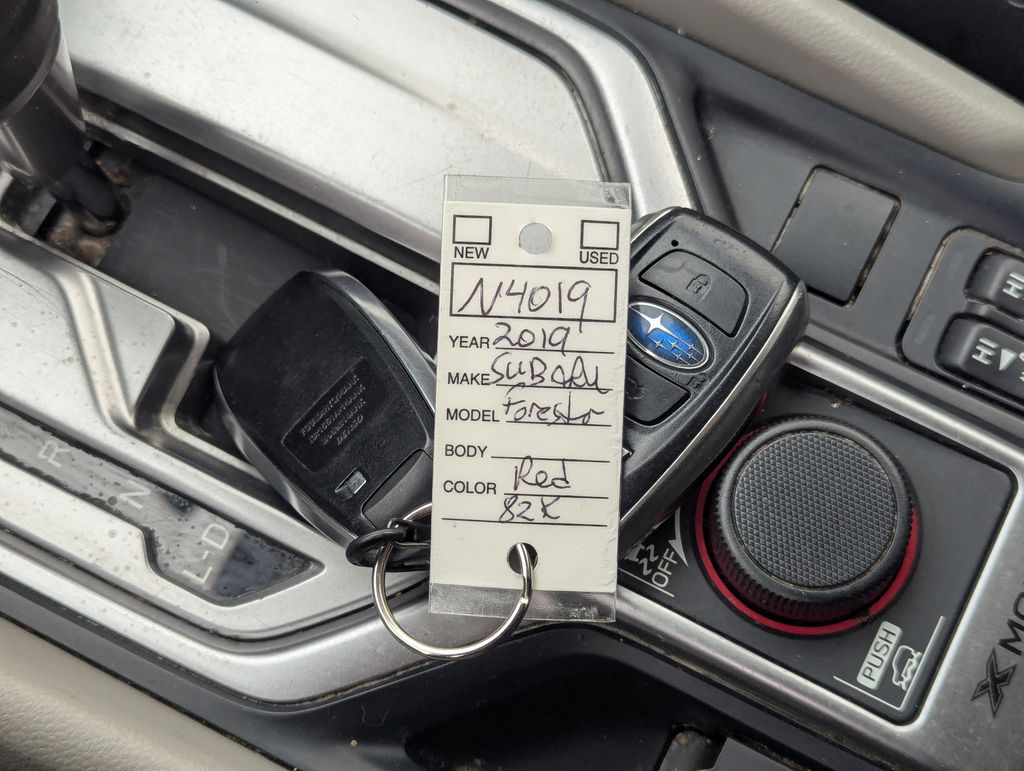 NEW USED
N4019
YEAR 2019
MAKE SUBARU
MODEL Forester
BODY
COLOR Red
82K
R
N
L-D
OFF
PUSH
X MO